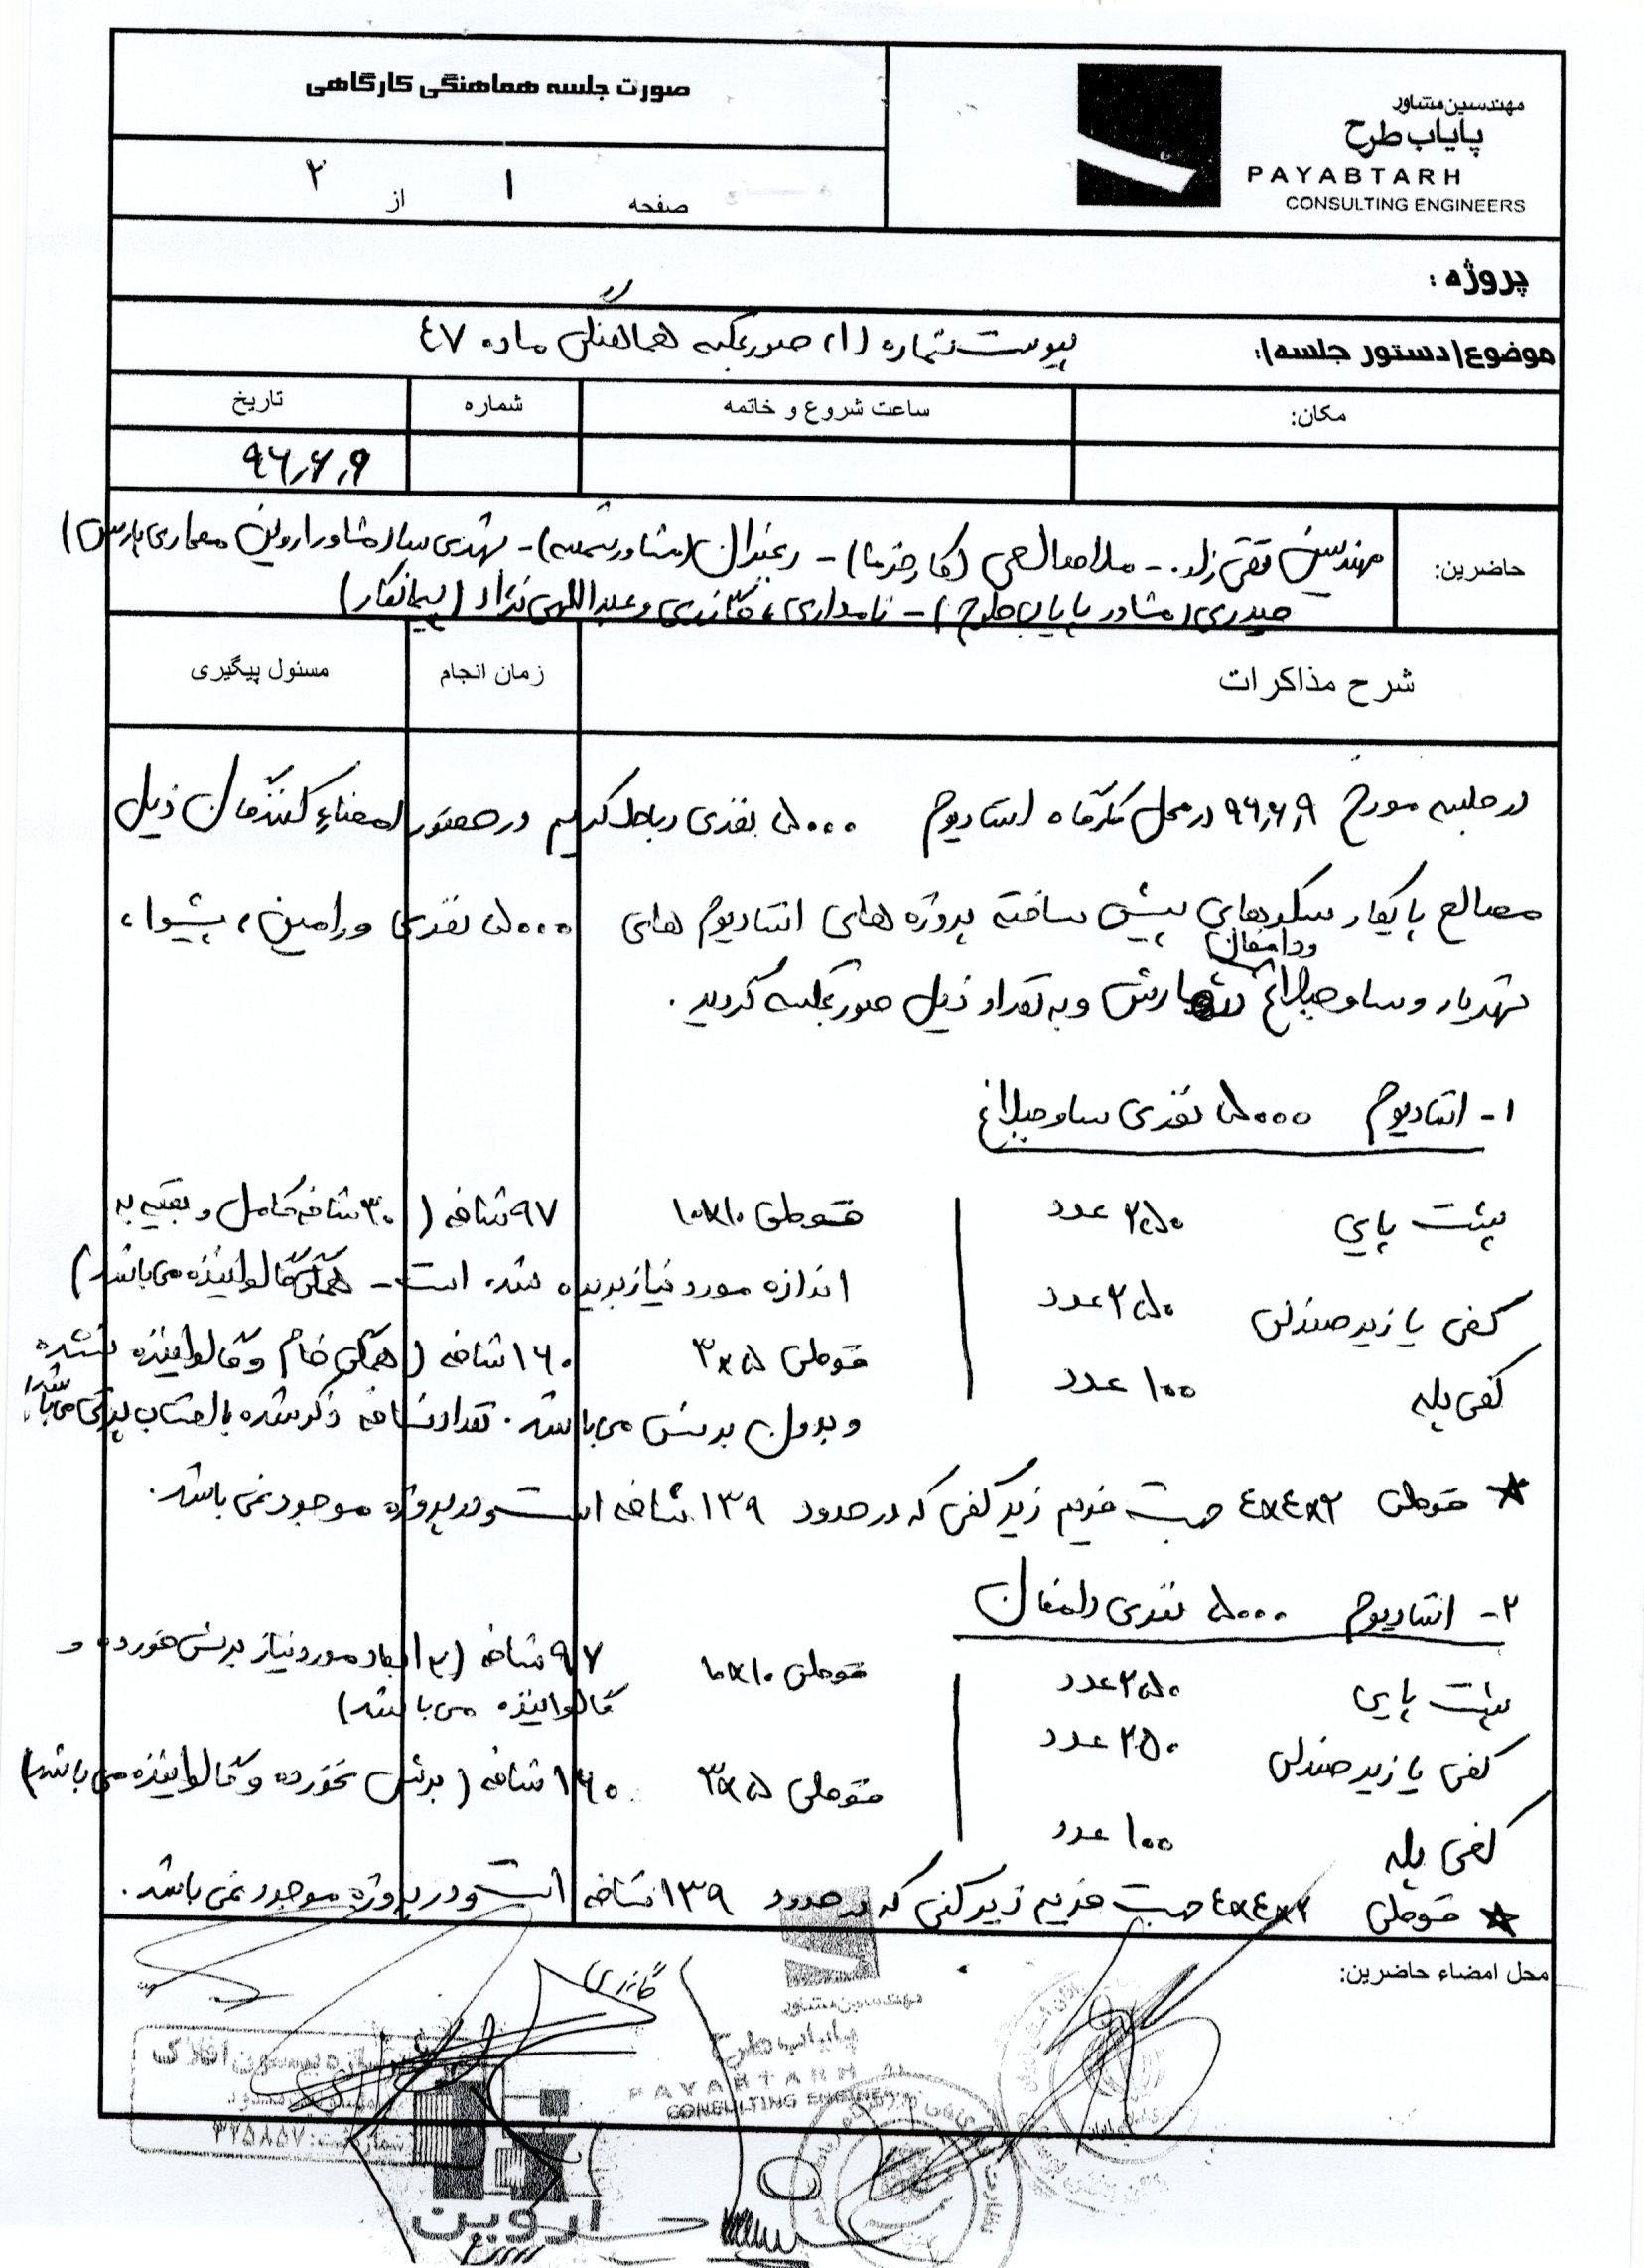 صورت جلسه هماهنگی کارگاهی
مهندسین مشاور
پایاب طرح
PAYABTARH
CONSULTING ENGINEERS
صفحه ۱ از ۲
پروژه :
موضوع(دستور جلسه): پیوست شماره (۱) صورتجلسه هماهنگی ماده ٤٧
مکان: ساعت شروع و خاتمه شماره تاریخ
۹۶٫۶٫۹
حاضرین: مهندسین تقی زاده - ملاصالحی (کارفرما) - (مشاور ) - مهدی (مشاور اروین معماری پارس)
حیدری (مشاور پایاب طرح) - نامداری، گازری و عبداللهی نژاد (پیمانکار)
شرح مذاکرات زمان انجام مسئول پیگیری
در جلسه مورخ ۹۶٫۶٫۹ در محل کارگاه استادیوم ۵۰۰۰ نفری رباط کریم در حضور امضاء کنندگان ذیل
مصالح پایکار سکوهای پیش ساخته پروژه های استادیوم های ۵۰۰۰ نفری ورامین، پیشوا،
شهریار و ساوجبلاغ ودامغان شمارش و به تعداد ذیل صورتجلسه گردید.
۱- استادیوم ۵۰۰۰ نفری ساوجبلاغ
پشت پایی ۲۵۰ عدد قوطی ۱۰×۱۰ ۹۷ شاخه (۳۰ شاخه کامل و بقیه به
اندازه مورد نیاز بریده شده است - همگی گالوانیزه می باشد)
کفی یا زیر صندلی ۲۵۰ عدد
قوطی ۳×۵ ۱۶۰ شاخه (همگی خام و گالوانیزه نشده
کفی پله ۱۰۰ عدد
و بدون برش می باشد. تعداد شاخه ذکر شده با احتساب پرتی می باشد)
☆ قوطی ٤×٤×۲ جهت فریم زیر کفی که در حدود ۱۳۹ شاخه است و در پروژه موجود نمی باشد.
۲- استادیوم ۵۰۰۰ نفری دامغان
پشت پایی ۲۵۰ عدد قوطی ۱۰×۱۰ ۹۷ شاخه (در ابعاد مورد نیاز برش خورده و
گالوانیزه می باشد)
کفی یا زیر صندلی ۲۵۰ عدد
قوطی ۳×۵ ۱۶۰ شاخه (برش نخورده و گالوانیزه می باشد)
کفی پله ۱۰۰ عدد
☆ قوطی ٤×٤×۲ جهت فریم زیر کفی که در حدود ۱۳۹ شاخه است و در پروژه موجود نمی باشد.
محل امضاء حاضرین:
گازری
مهندسین مشاور
پایاب طرح
PAYABTARH
CONSULTING ENGINEERS
۳۲۵۸۵۷
اروین